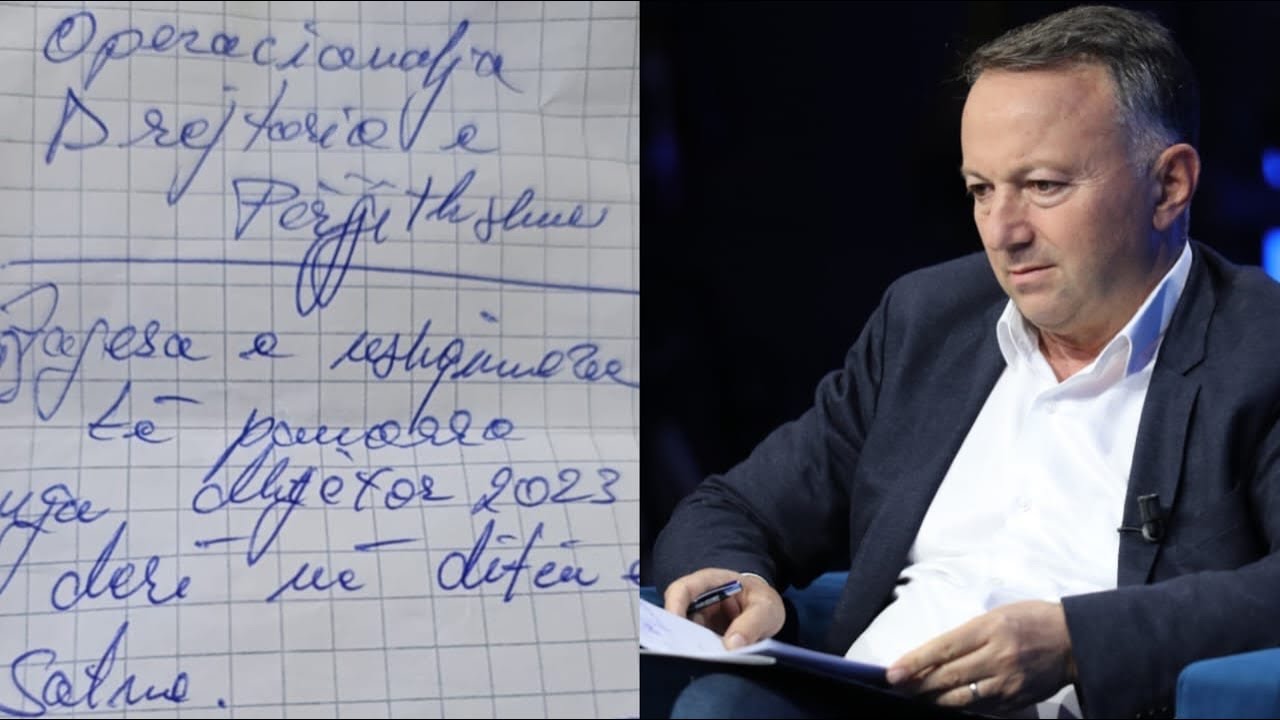 Operacionalja
Drejtoria e
Përgjithshme
Pagesa e ushqimeve
të punoäre
nga dhjetor 2023
deri në ditën e
Satme.